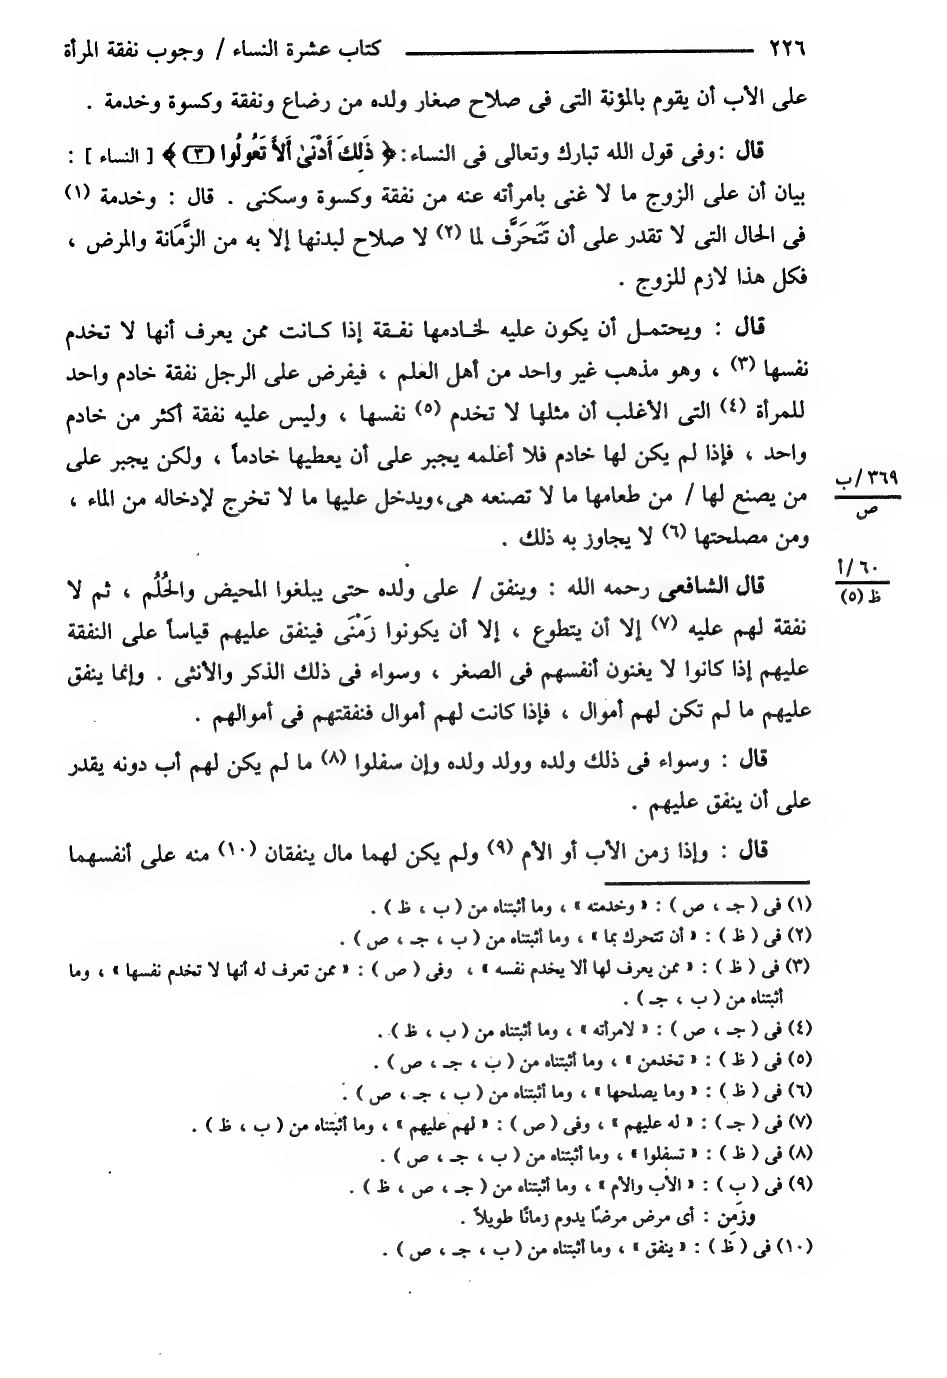 ٢٢٦ كتاب عشرة النساء / وجوب نفقة المرأة
على الأب أن يقوم بالمؤنة التى فى صلاح صغار ولده من رضاع ونفقة وكسوة وخدمة .
قال :وفى قول الله تبارك وتعالى فى النساء:﴿ ذَلِكَ أَدْنَىٰ أَلاَّ تَعُولُوا (٣) ﴾ [ النساء ] :
بيان أن على الزوج ما لا غنى بامرأته عنه من نفقة وكسوة وسكنى . قال : وخدمة (١)
فى الحال التى لا تقدر على أن تَتَحَرَّف لما (٢) لا صلاح لبدنها إلا به من الزَّمَانة والمرض ،
فكل هذا لازم للزوج .
قال : ويحتمل أن يكون عليه لخادمها نفقة إذا كانت ممن يعرف أنها لا تخدم
نفسها (٣) ، وهو مذهب غير واحد من أهل العلم ، فيفرض على الرجل نفقة خادم واحد
للمرأة (٤) التى الأغلب أن مثلها لا تخدم (٥) نفسها ، وليس عليه نفقة أكثر من خادم
واحد ، فإذا لم يكن لها خادم فلا أعلمه يجبر على أن يعطيها خادماً ، ولكن يجبر على
من يصنع لها / من طعامها ما لا تصنعه هى،ويدخل عليها ما لا تخرج لإدخاله من الماء ،
٣٦٩/ب
ص
ومن مصلحتها (٦) لا يجاوز به ذلك .
قال الشافعى رحمه الله : وينفق / على ولده حتى يبلغوا المحيض والحُلُم ، ثم لا
٦٠/أ
ظ (٥)
نفقة لهم عليه (٧) إلا أن يتطوع ، إلا أن يكونوا زَمْنَى فينفق عليهم قياساً على النفقة
عليهم إذا كانوا لا يغنون أنفسهم فى الصغر ، وسواء فى ذلك الذكر والأنثى . وإنما ينفق
عليهم ما لم تكن لهم أموال ، فإذا كانت لهم أموال فنفقتهم فى أموالهم .
قال : وسواء فى ذلك ولده وولد ولده وإن سفلوا (٨) ما لم يكن لهم أب دونه يقدر
على أن ينفق عليهم .
قال : وإذا زمن الأب أو الأم (٩) ولم يكن لهما مال ينفقان (١٠) منه على أنفسهما
(١) فى ( جـ ، ص ) : « وخدمته » ، وما أثبتناه من ( ب ، ظ ) .
(٢) فى ( ظ ) : « أن تتحرك بما » ، وما أثبتناه من ( ب ، جـ ، ص ) .
(٣) فى ( ظ ) : « ممن يعرف لها ألا يخدم نفسه » ، وفى ( ص ) : « ممن تعرف له أنها لا تخدم نفسها » ، وما
أثبتناه من ( ب ، جـ ) .
(٤) فى ( جـ ، ص ) : « لامرأته » ، وما أثبتناه من ( ب ، ظ ) .
(٥) فى ( ظ ) : « تخدمن » ، وما أثبتناه من ( ب ، جـ ، ص ) .
(٦) فى ( ظ ) : « وما يصلحها » ، وما أثبتناه من ( ب ، جـ ، ص ) .
(٧) فى ( جـ ) : « له عليهم » ، وفى ( ص ) : « لهم عليهم » ، وما أثبتناه من ( ب ، ظ ) .
(٨) فى ( ظ ) : « تسفلوا » ، وما أثبتناه من ( ب ، جـ ، ص ) .
(٩) فى ( ب ) : « الأب والأم » ، وما أثبتناه من ( جـ ، ص ، ظ ) .
وزَمِن : أى مرض مرضًا يدوم زمانًا طويلاً .
(١٠) فى ( ظ ) : « ينفق » ، وما أثبتناه من ( ب ، جـ ، ص ) .